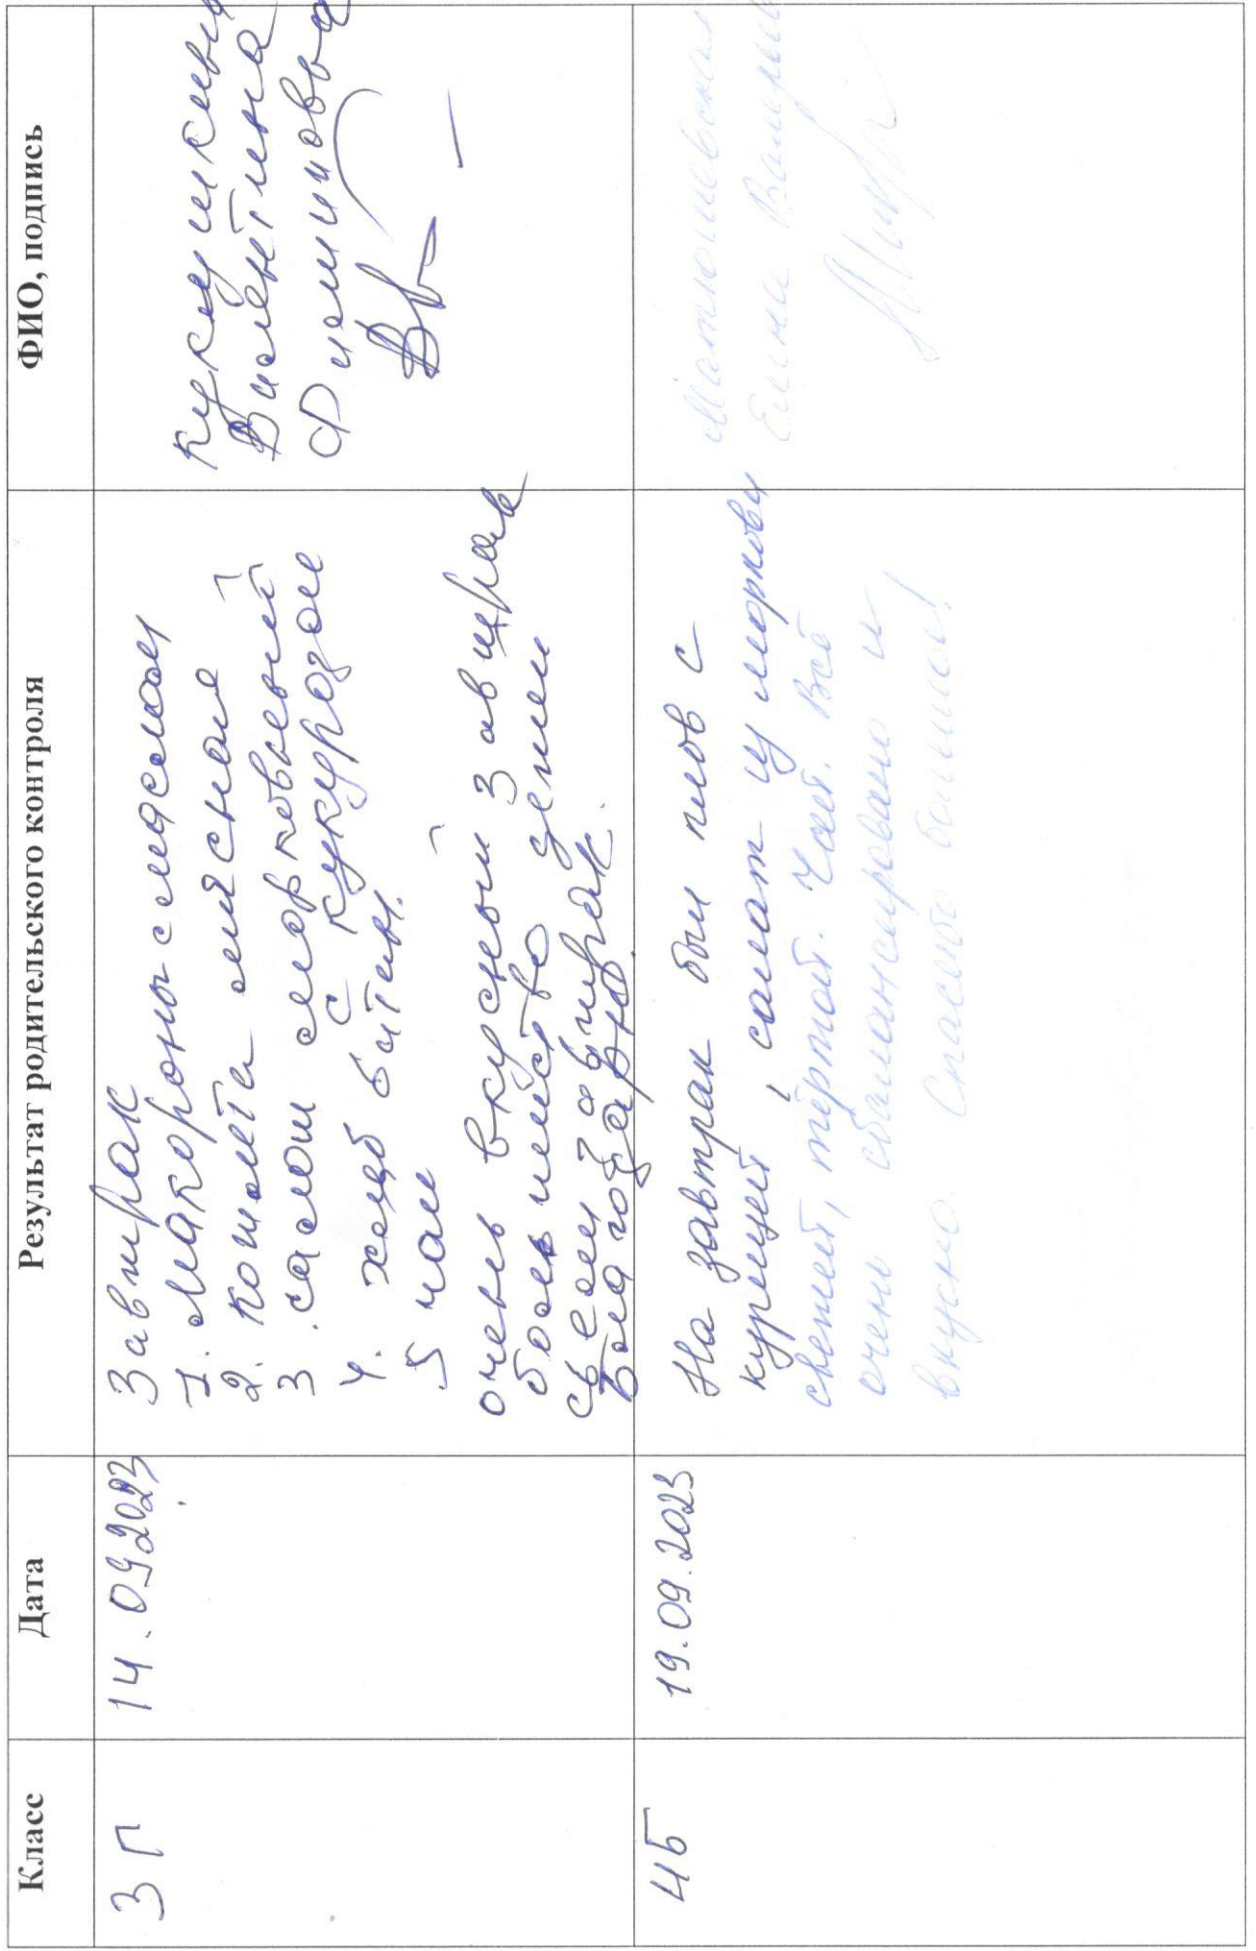 Класс Дата Результат родительского контроля ФИО, подпись
3 Г
14.09.2023
Завтрак
1. Макароны с маслом
2. котлета мясная
3 салат морковный
с кукурузой
4. хлеб битый
5 чай
очень вкусный завтрак
большинство детей
съели завтрак.
Благодарю.
Кукушкина
Валентина
Филипповна
4Б
19.09.2023
На завтрак был плов с
курицей, салат из моркови
свежей, тёртой. Чай. Всё
очень сбалансировано и
вкусно. Спасибо большое!
Елена